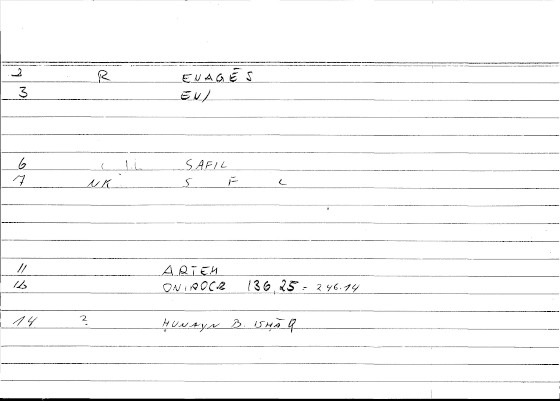 2 R EUAGĒS
3 EU/
6 SAFIL
7 NK S F L
11 ARTEM
12 ONIROCR 136,25 = 246.14
14 ? ḤUNAYN B. ISḤĀQ